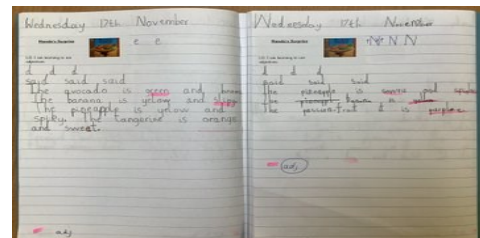 Wednesday 17th November
Handa's Surprise
e e
LO: I am learning to use
adjectives
d d d
said said said
The avocado is green and
The banana is yelow and
The pineapple is yelow and
spiky. The tangerine is orange
and sweet.
adj
Wednesday 17th November
Handa's Surprise
N N N N
LO: I am learning to use
adjectives
d d d
said said said
The pineapple is and
The is
The passion fruit is
adj